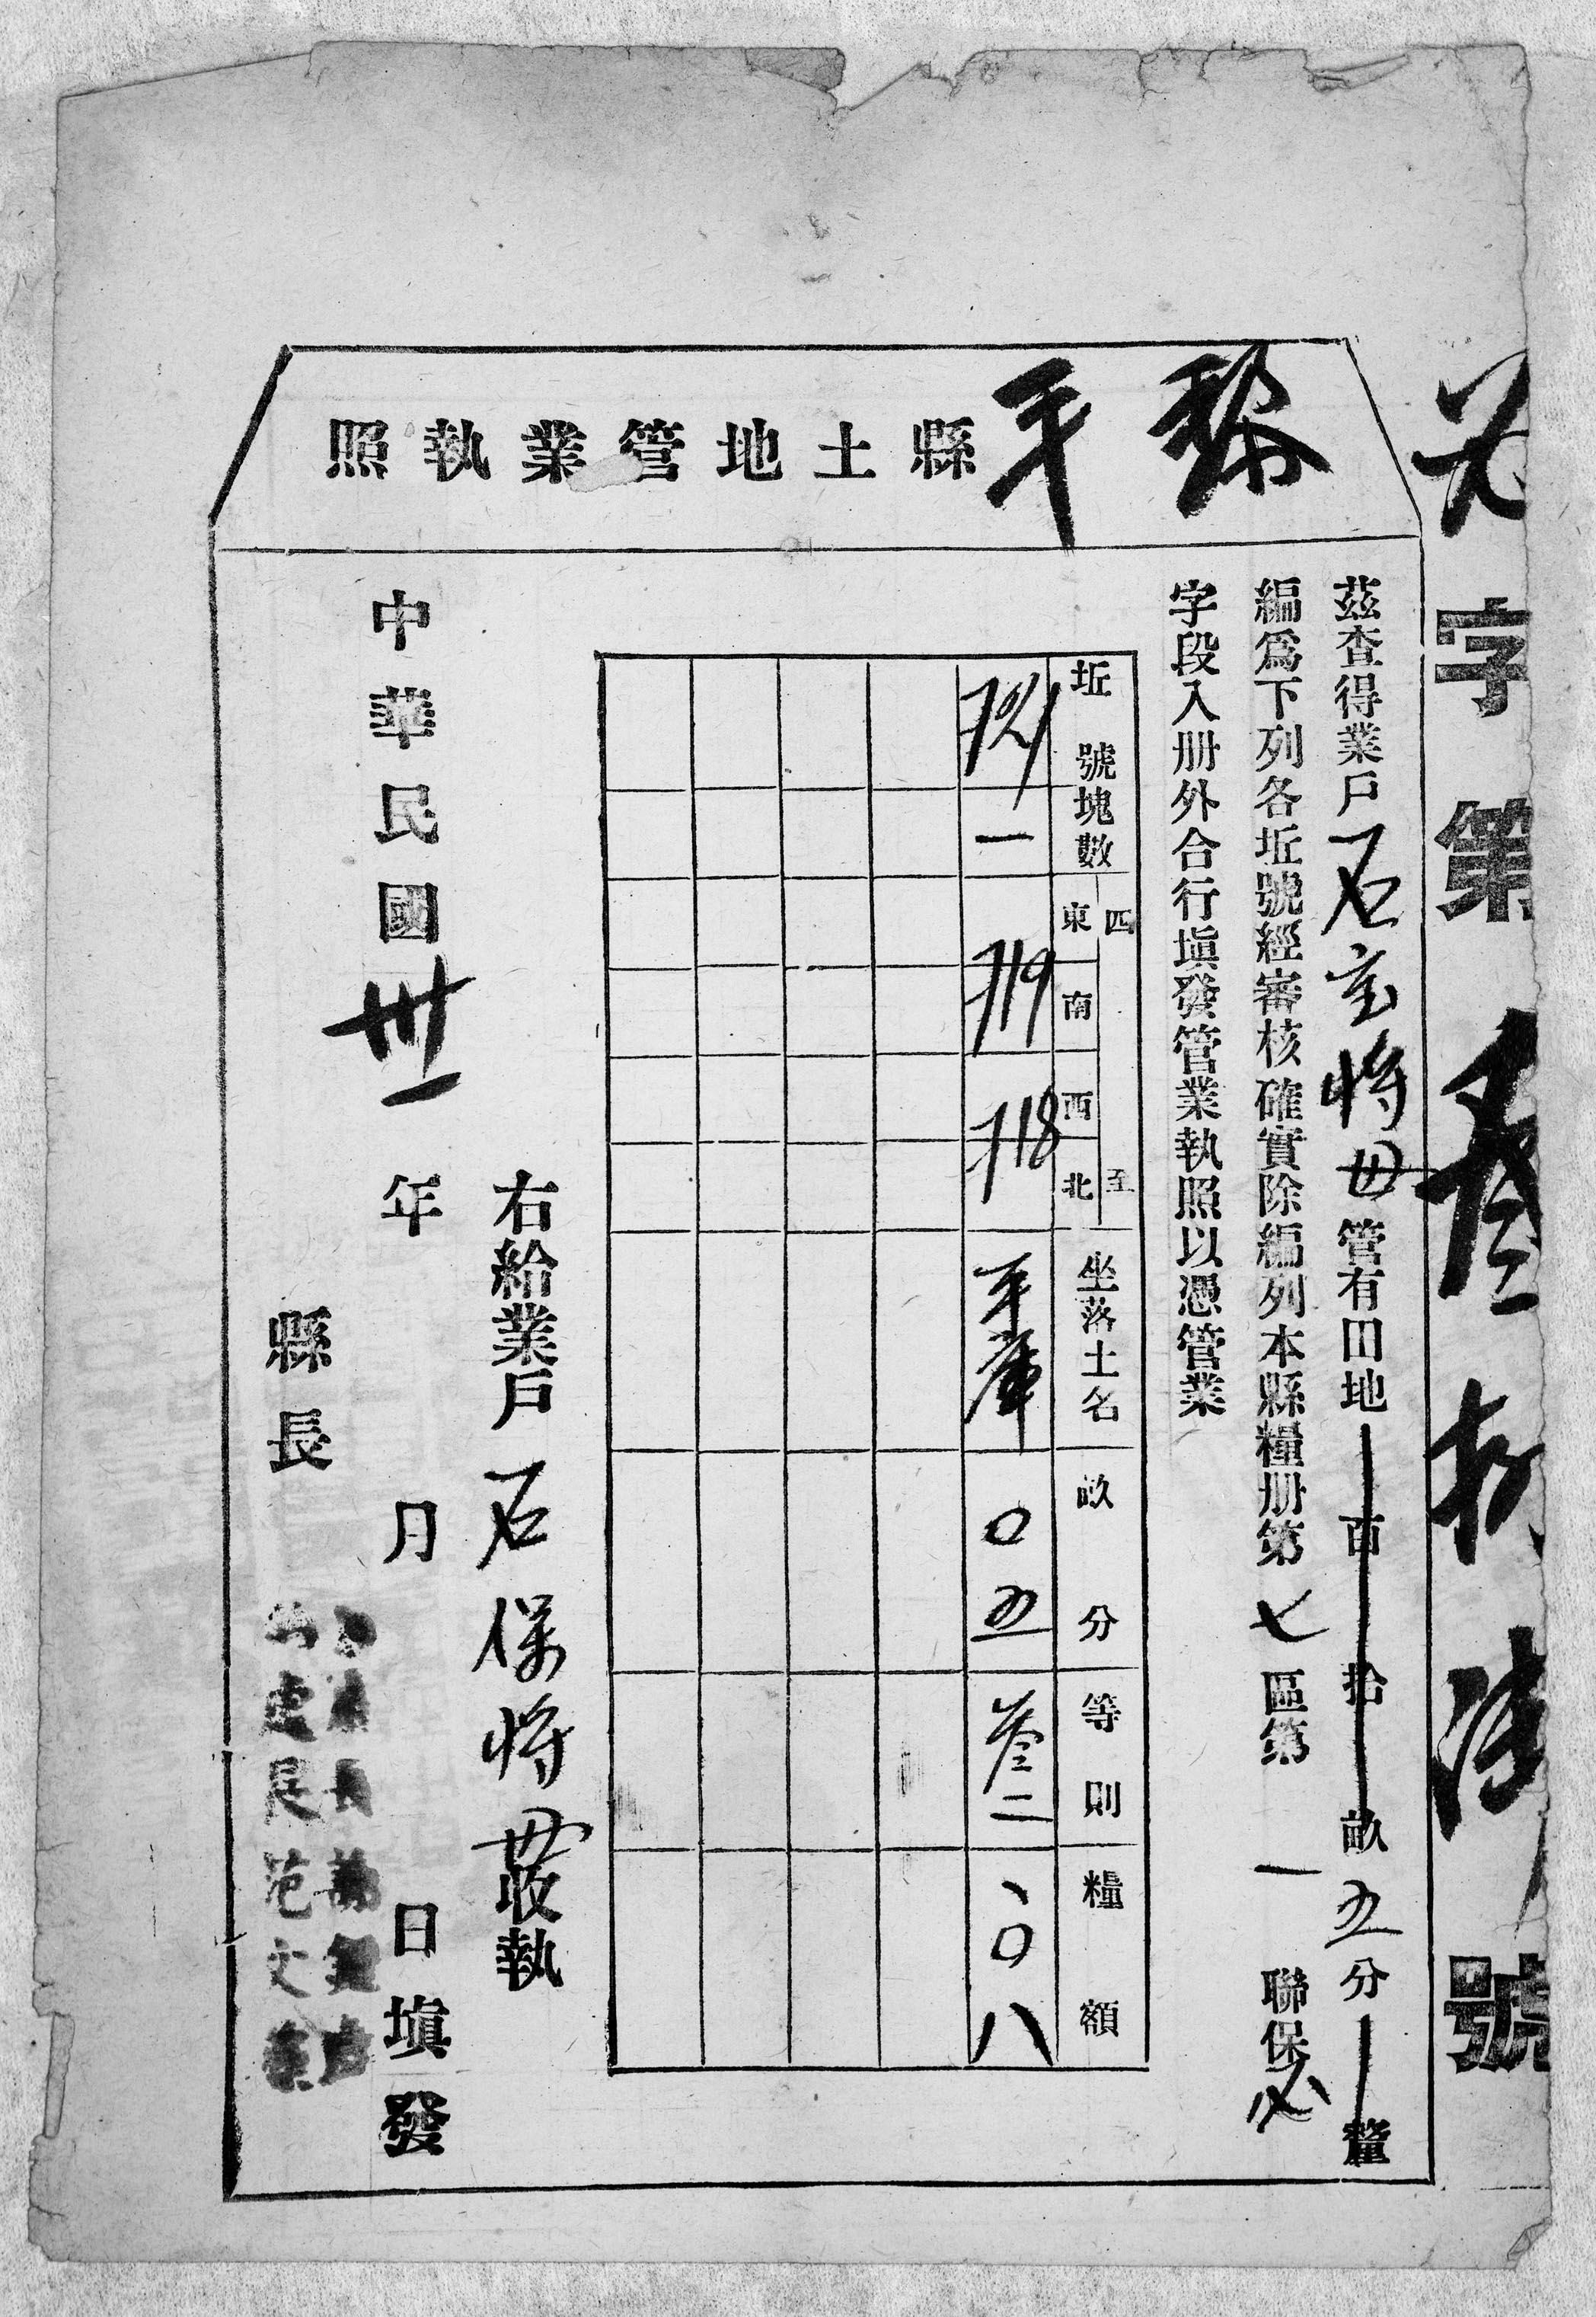 字第叁拾號
黎平縣土地管業執照
茲查得業戶石將毋管有田地百拾畝五分釐
編為下列各坵號經審核確實除編列本縣糧册第七區第一聯保必
字段入册外合行填發管業執照以憑管業
坵號 塊數 四至 東 南 西 北 坐落土名 畝 分 等則 糧額
一 719 718 平庫 〇 五 叁二 、〇八
右給業戶石保將收執
中華民國卅一年月日填發
縣長